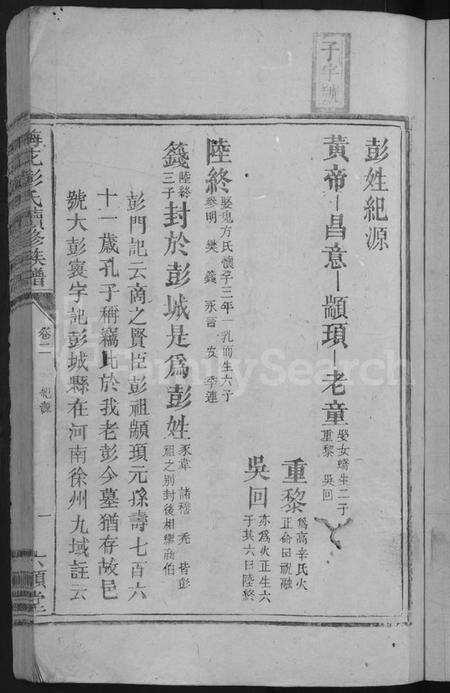 子字號
彭姓紀源
黃帝－昌意－顓頊－老童 娶女嬌生二子
重黎 吳回
重黎 為高辛氏火
正命曰祝融
吳回 亦為火正生六
子其六曰陸終
陸終 娶鬼方氏懷子三年一乳而生六子
參明 樊 籛 求言 安 季連
籛 陸終
三子 封於彭城是為彭姓 豕韋 諸稽 禿 皆彭
祖之別封後相繼商伯
彭門記云商之賢臣彭祖顓頊元孫壽七百六
十一歲孔子稱竊比於我老彭今墓猶存故邑
號大彭寰宇記彭城縣在河南徐州九域註云
梅花彭氏續修族譜
卷二 紀源 一 六順堂
FamilySearch